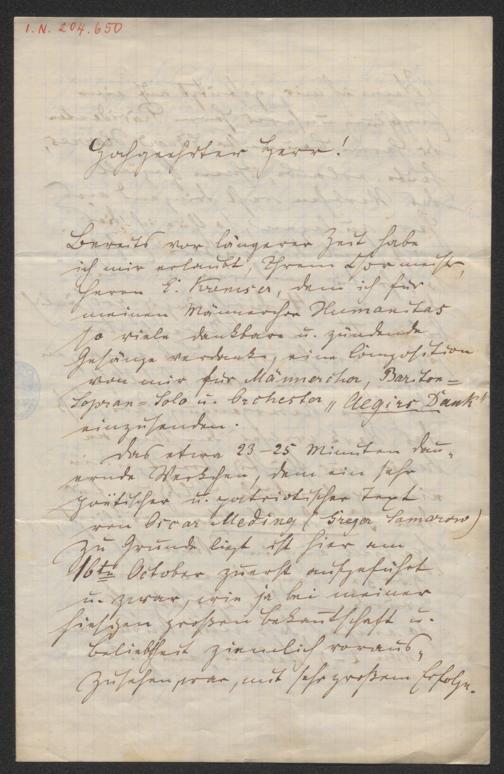 I.N. 204.650
Hochgeehrter Herr!
Bereits vor längerer Zeit habe
ich mir erlaubt, Ihrem Chormeister,
Herrn E. Kremser, dem ich für
meinen Männerchor Humanitas
so viele dankbare u. zündende
Gesänge verdanke, eine Composition
von mir für Männerchor, Bariton-
Sopran-Solo u. Orchester „Aegirs Dank"
einzusenden.
Das etwa 23-25 Minuten dau-
ernde Werkchen, dem ein sehr
poëtischer u. patriotischer Text
von Oscar Meding (Gregor Samarow)
zu Grunde liegt ist hier am
16ten October zuerst aufgeführt
u. zwar, wie ja bei meiner
hiesigen großen Bekanntschaft u.
Beliebtheit ziemlich voraus-
zusehen war, mit sehr großem Erfolge.